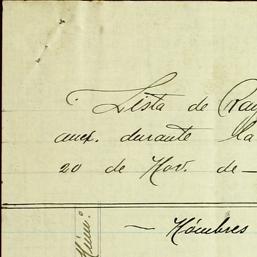 Lista de
aux. durante la
20 de Nov. de—
Núm.º
— Hómbres